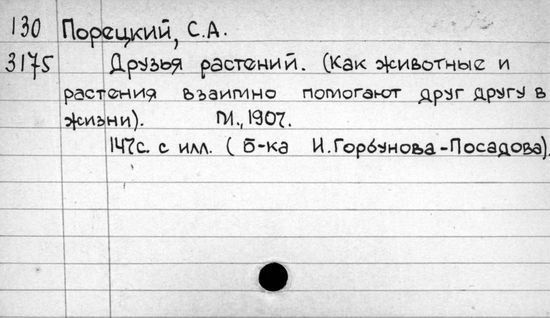 130 Порецкий, С.А.
3175 Друзья растений. (Как животные и
растения взаимно помогают друг другу в
жизни). М., 1907.
147с. с илл. ( б-ка И.Горбунова-Посадова).